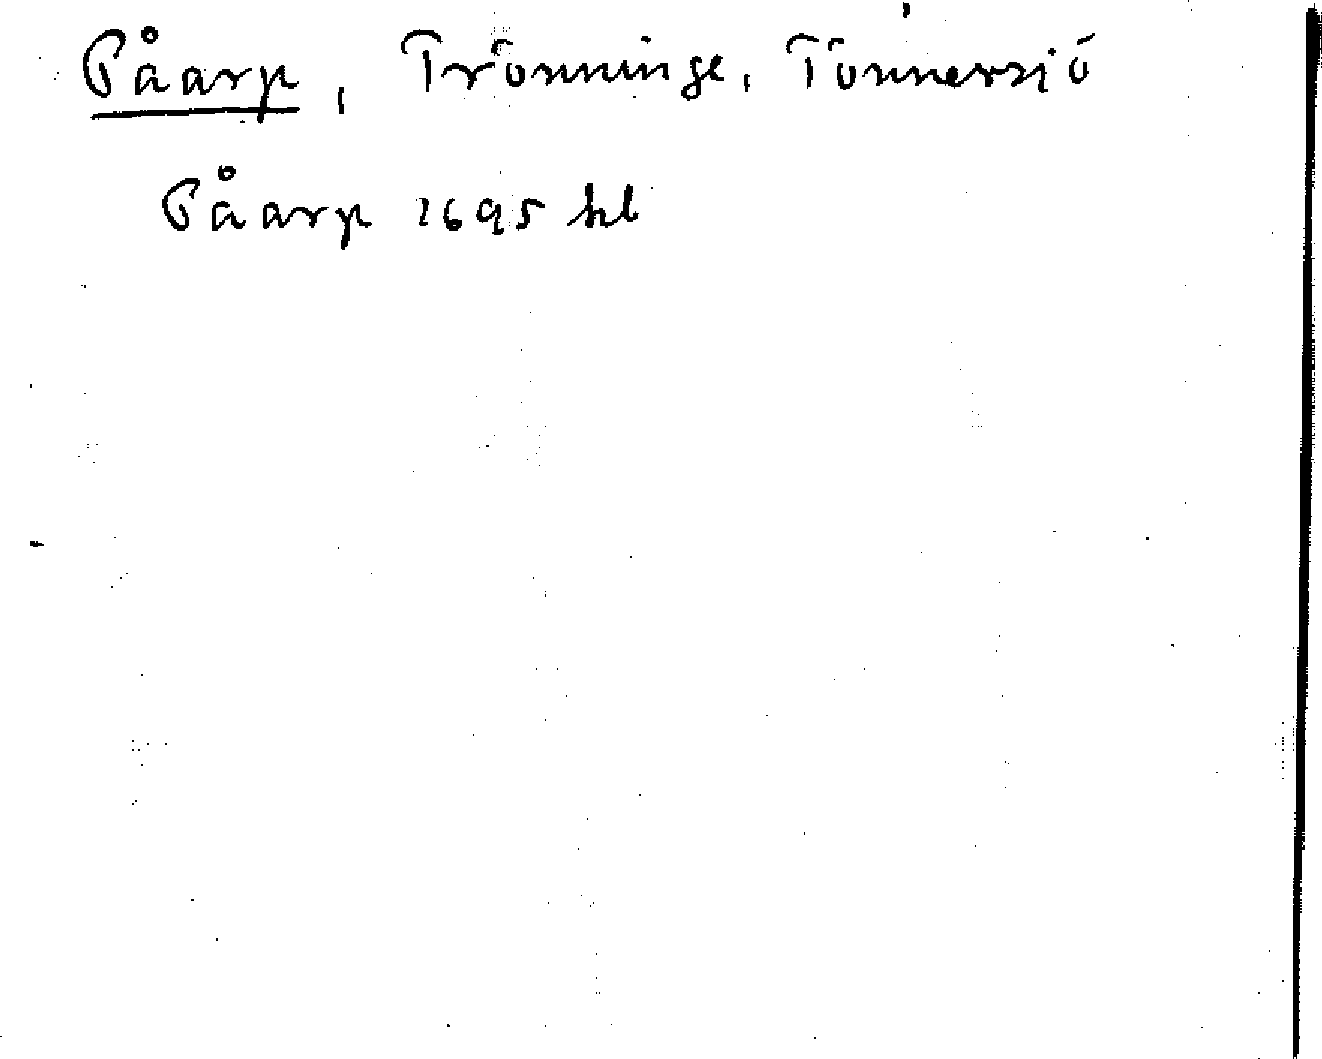 Påarp, Trönninge, Tönnersjö
Påarp 1695 kl